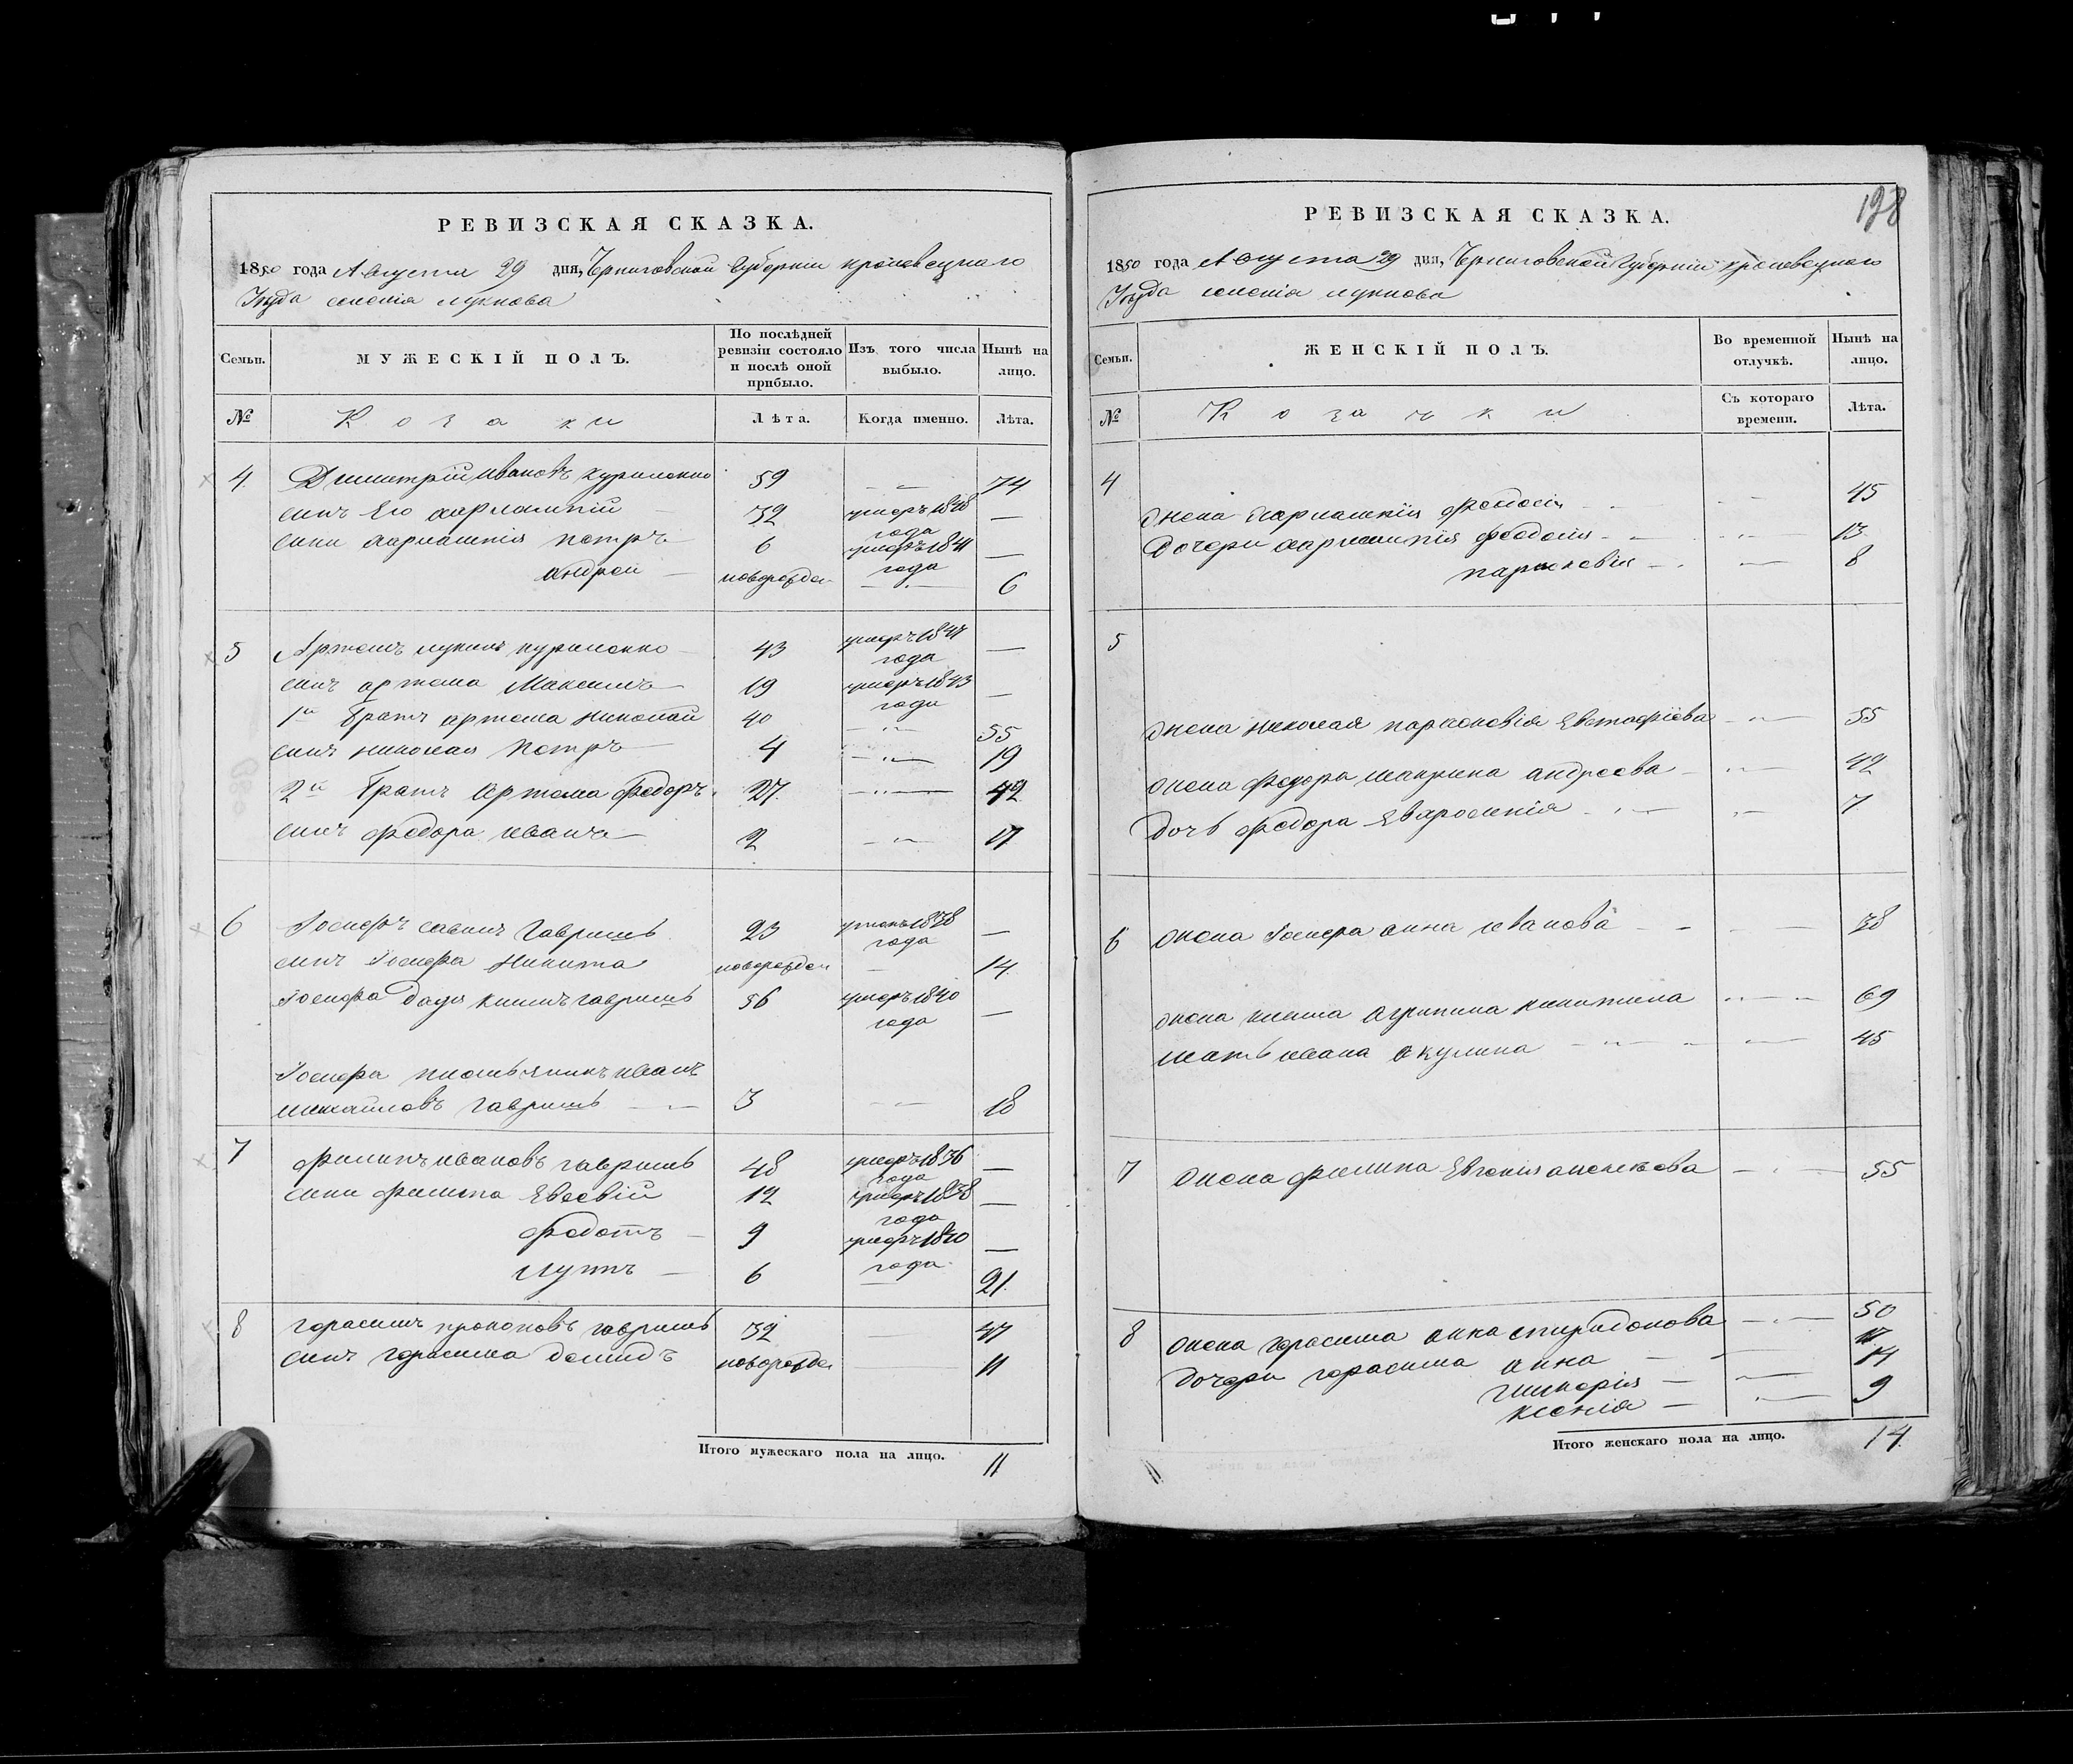 РЕВИЗСКАЯ СКАЗКА.
1850 года Августа 29 дня, Черниговской Губернии Кролевецкаго
Уезда селения Лукнова
Семьи. МУЖЕСКІЙ ПОЛЪ. По послѣдней ревизіи состояло и послѣ оной прибыло. Изъ того числа выбыло. Нынѣ на лицо.
№ Козаки Лѣта. Когда именно. Лѣта.
4 Димитрій Ивановъ Куриленко 59 74
синъ Его Харлампій 32 умеръ 1848 года —
сини Харлампія Петръ 6 умеръ 1841 года —
Андрей новорожден 6
5 Артемъ Лукинъ Куриленко 43 умеръ 1847 года —
синъ Артема Максимъ 19 умеръ 1843 года —
1й братъ Артема Николай 40 55
синъ Николая Петръ 4 19
2й братъ Артема Федоръ 27 42
синъ Федора Иванъ 2 17
6 Іосифъ Савинъ Гавришъ 23 1838 года —
синъ Іосифа Никита новорожден 14
Іосифа дядя Климъ Гавришъ 56 умеръ 1840 года —
Іосифа племьяникъ Иванъ
Михайловъ Гавришъ 3 18
7 Филипъ Ивановъ Гавришъ 48 умеръ 1836 года —
сини Филипа Евсевій 12 умеръ 1838 года —
Федотъ 9 умеръ 1840 года —
Лупъ 6 21
8 Герасимъ Прокоповъ Гавришъ 32 47
синъ Герасима Демидъ новорожден 11
Итого мужескаго пола на лицо. 11
198
РЕВИЗСКАЯ СКАЗКА.
1850 года Августа 29 дня, Черниговской Губерніи Кролевецкаго
Уезда селенія Лукнова
Семьи. ЖЕНСКІЙ ПОЛЪ. Во временной отлучкѣ. Нынѣ на лицо.
№ Козачки Съ котораго времени. Лѣта.
4
Жена Харлампія Феодосія 45
Дочери Харлампія Феодосия 13
Парасковія 8
5
Жена Николая Парасковія Евстафіева 55
Жена Федора Андреева 42
Дочь Федора Евфросинія 7
6 Жена Іосифа Анна Иванова 38
Жена Клима Агрипина Никитина 69
Мать Ивана Акулина 45
7 Жена Филипа Евгенія 55
8 Жена Герасима Анна Спиридонова 50
Дочери Герасима Анна 17
Гликерія 14
Ксенія 9
Итого женскаго пола на лицо. 14